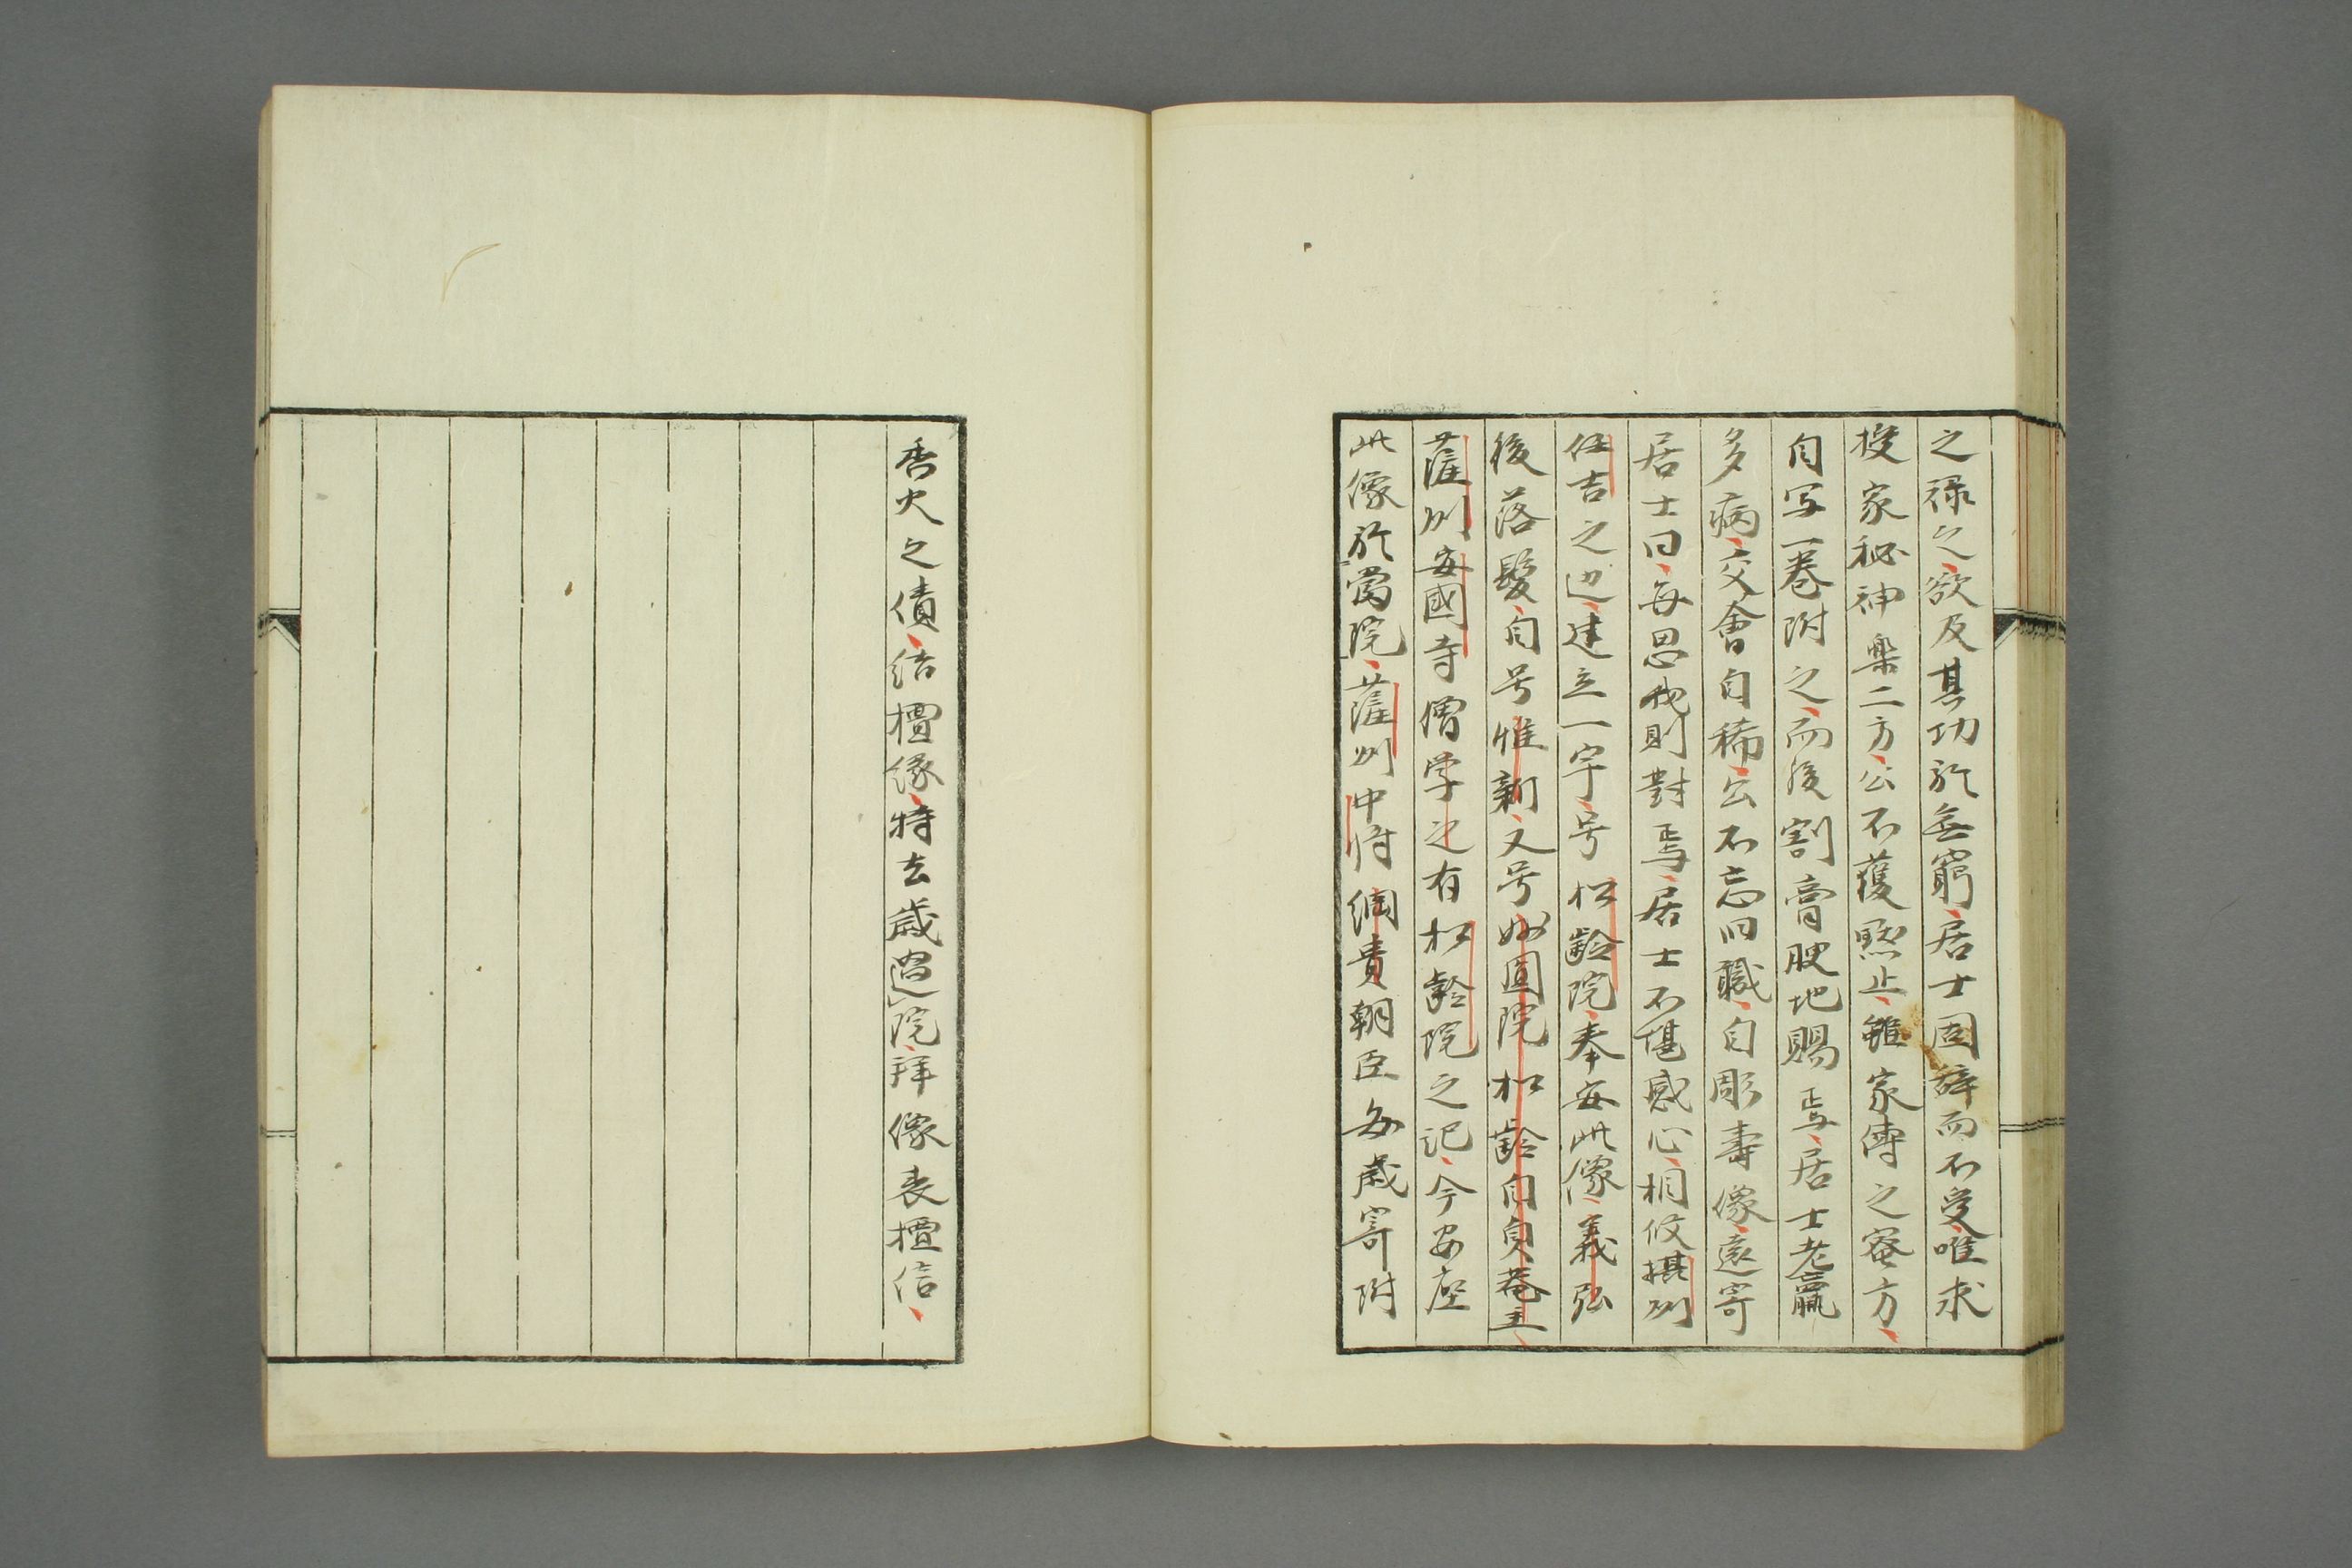 之禄之欲及其功於無窮居士固辞而不受唯求
授家秘神樂二方公不獲黙止雖家傳之蜜方
自写一巻附之而後割膏腴地賜焉居士老羸
多病交會自稀公不忘旧職自彫壽像遠寄
居士曰毎思我則對焉居士不堪感心相攸摂州
住吉之辺建立一宇号松齢院奉安此像義弘
後落髪自号惟新又号妙圓院松齢自貞菴主
薩州安國寺僧学之有松齢院之記今安座
此像於當院薩州中将綱貴朝臣毎歳寄附
香火之債結檀縁特去歳過院拜像表檀信